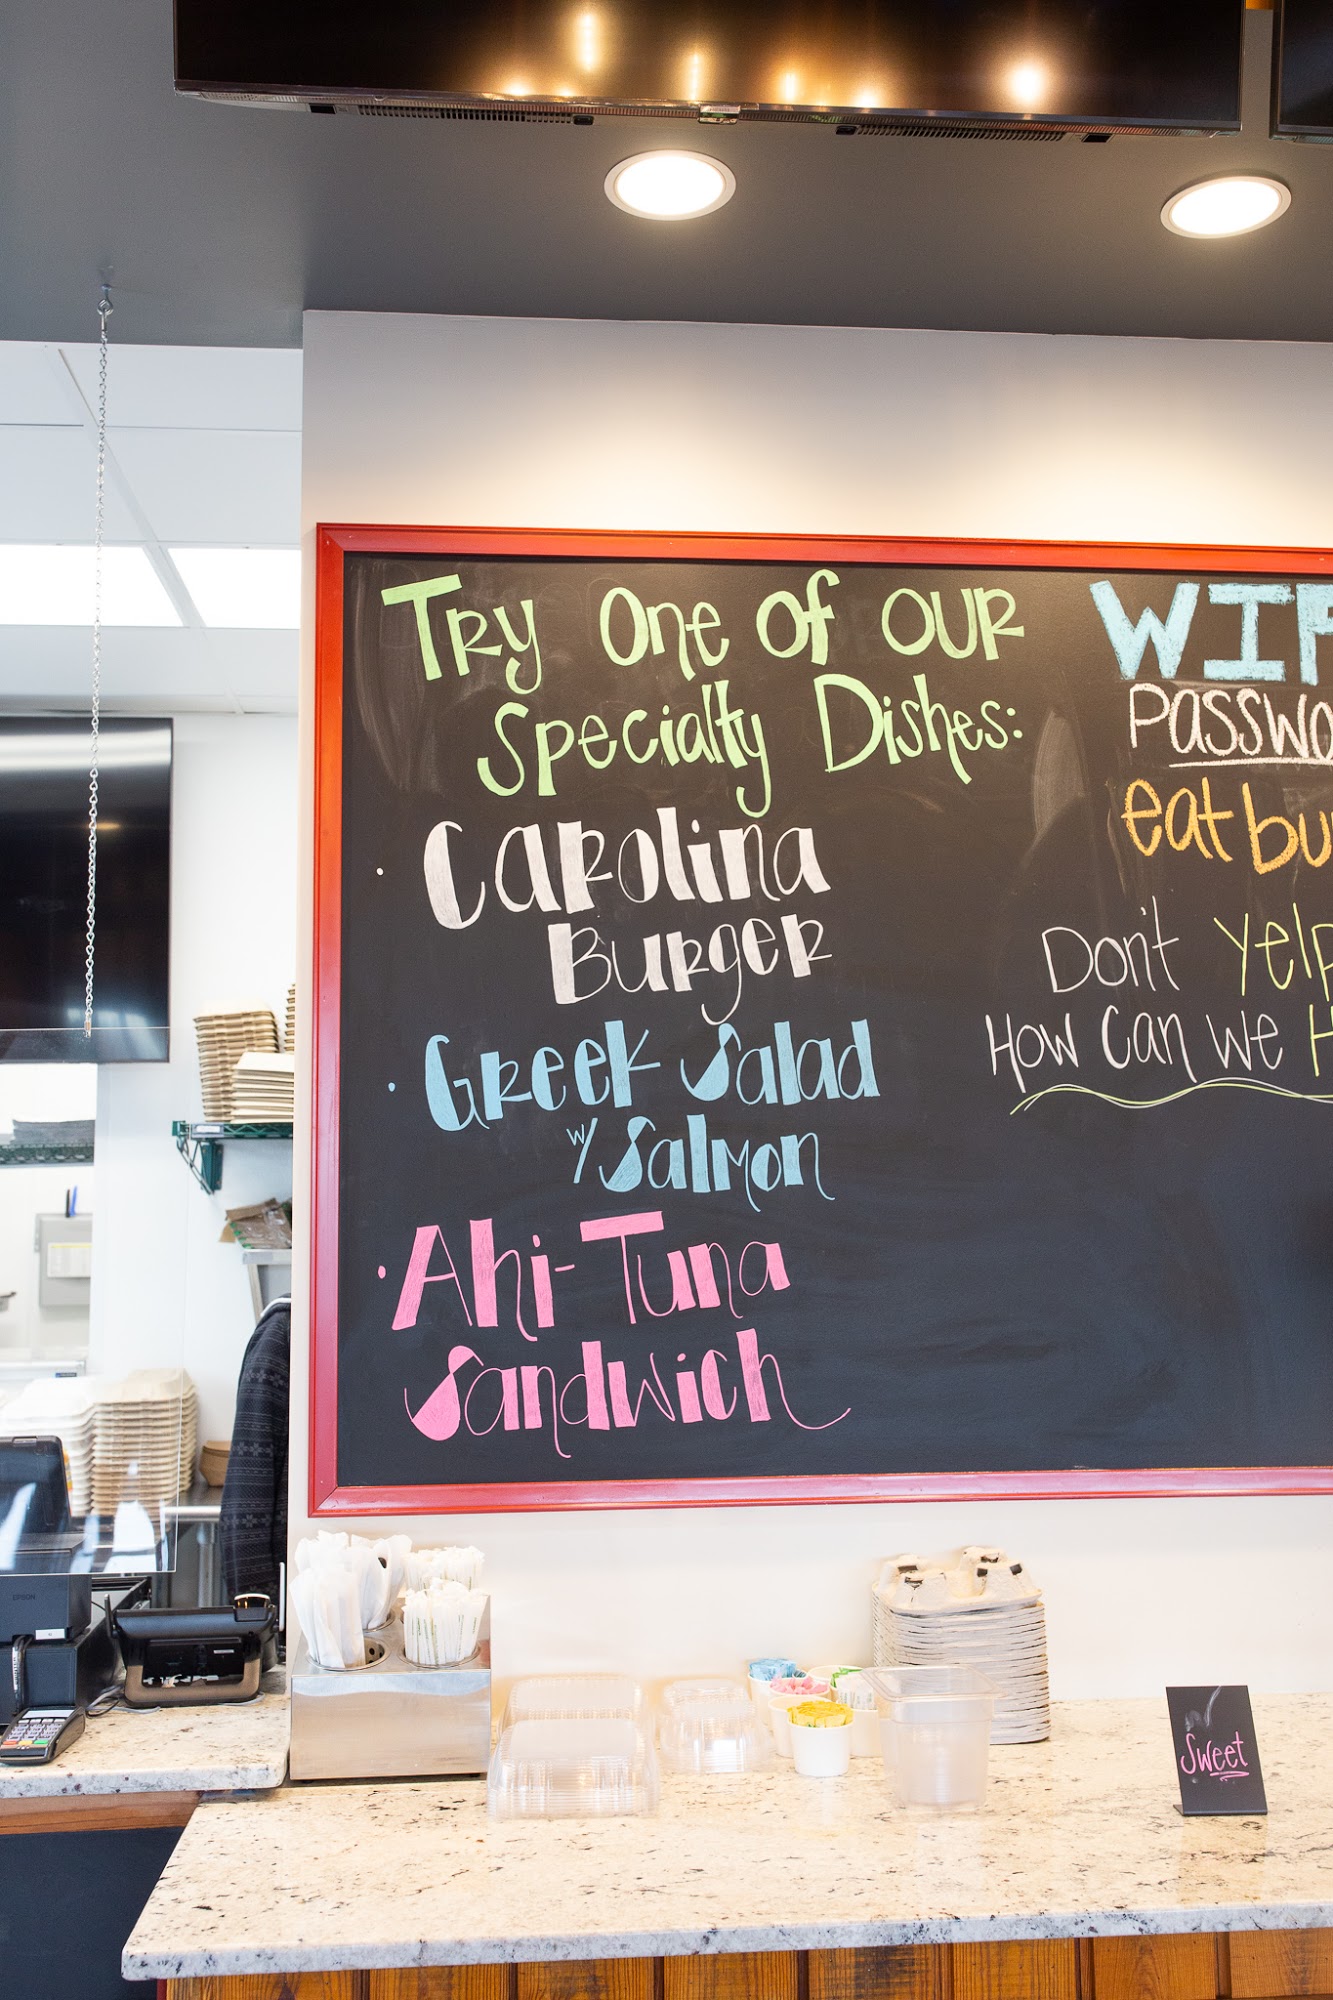 Try One Of Our
Specialty Dishes:
· Carolina
Burger
· Greek Salad
w/ Salmon
· Ahi-Tuna
Sandwich
WIF
Passwo
eat bu
Don't Yelp
How Can We H
Sweet
EPSON